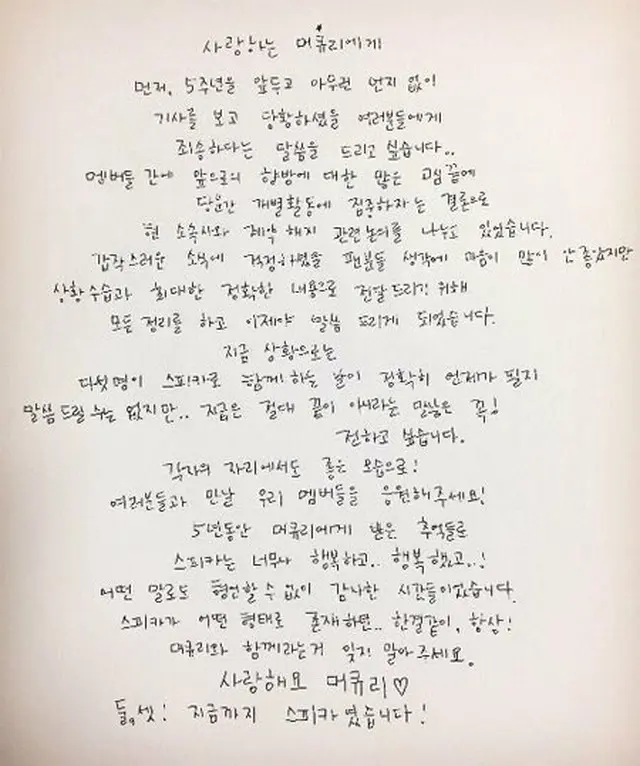 사랑하는 머큐리에게
먼저, 5주년을 앞두고 아무런 언지 없이
기사를 보고 당황하셨을 여러분들에게
죄송하다는 말씀을 드리고 싶습니다..
멤버들 간에 앞으로의 향방에 대한 많은 고심 끝에
당분간 개별활동에 집중하자는 결론으로
현 소속사와 계약 해지 관련논의를 나누고 있었습니다.
갑작스러운 소식에 걱정하셨을 팬분들 생각에 마음이 많이 안 좋았지만
상황 수습과 최대한 정확한 내용으로 전달 드리기 위해
모든 정리를 하고 이제야 말씀 드리게 되었습니다.
지금 상황으로는
다섯명이 스피카로 함께! 하는 날이 정확히 언제가 될지
말씀 드릴 수는 없지만.. 지금은 절대 끝이 아니라는 말씀은 꼭!
전하고 싶습니다.
각자의 자리에서도 좋은 모습으로!
여러분들과 만날 우리 멤버들을 응원해주세요!
5년동안 머큐리에게 받은 추억들로
스피카는 너무나 행복하고.. 행복했고..!
어떤 말로도 형언할 수 없이 감사한 시간들이었습니다.
스피카가 어떤 형태로 존재하던.. 한결같이, 항상!
머큐리와 함께라는거 잊지 말아주세요.
사랑해요 머큐리♡
둘,셋! 지금까지 스피카였습니다!